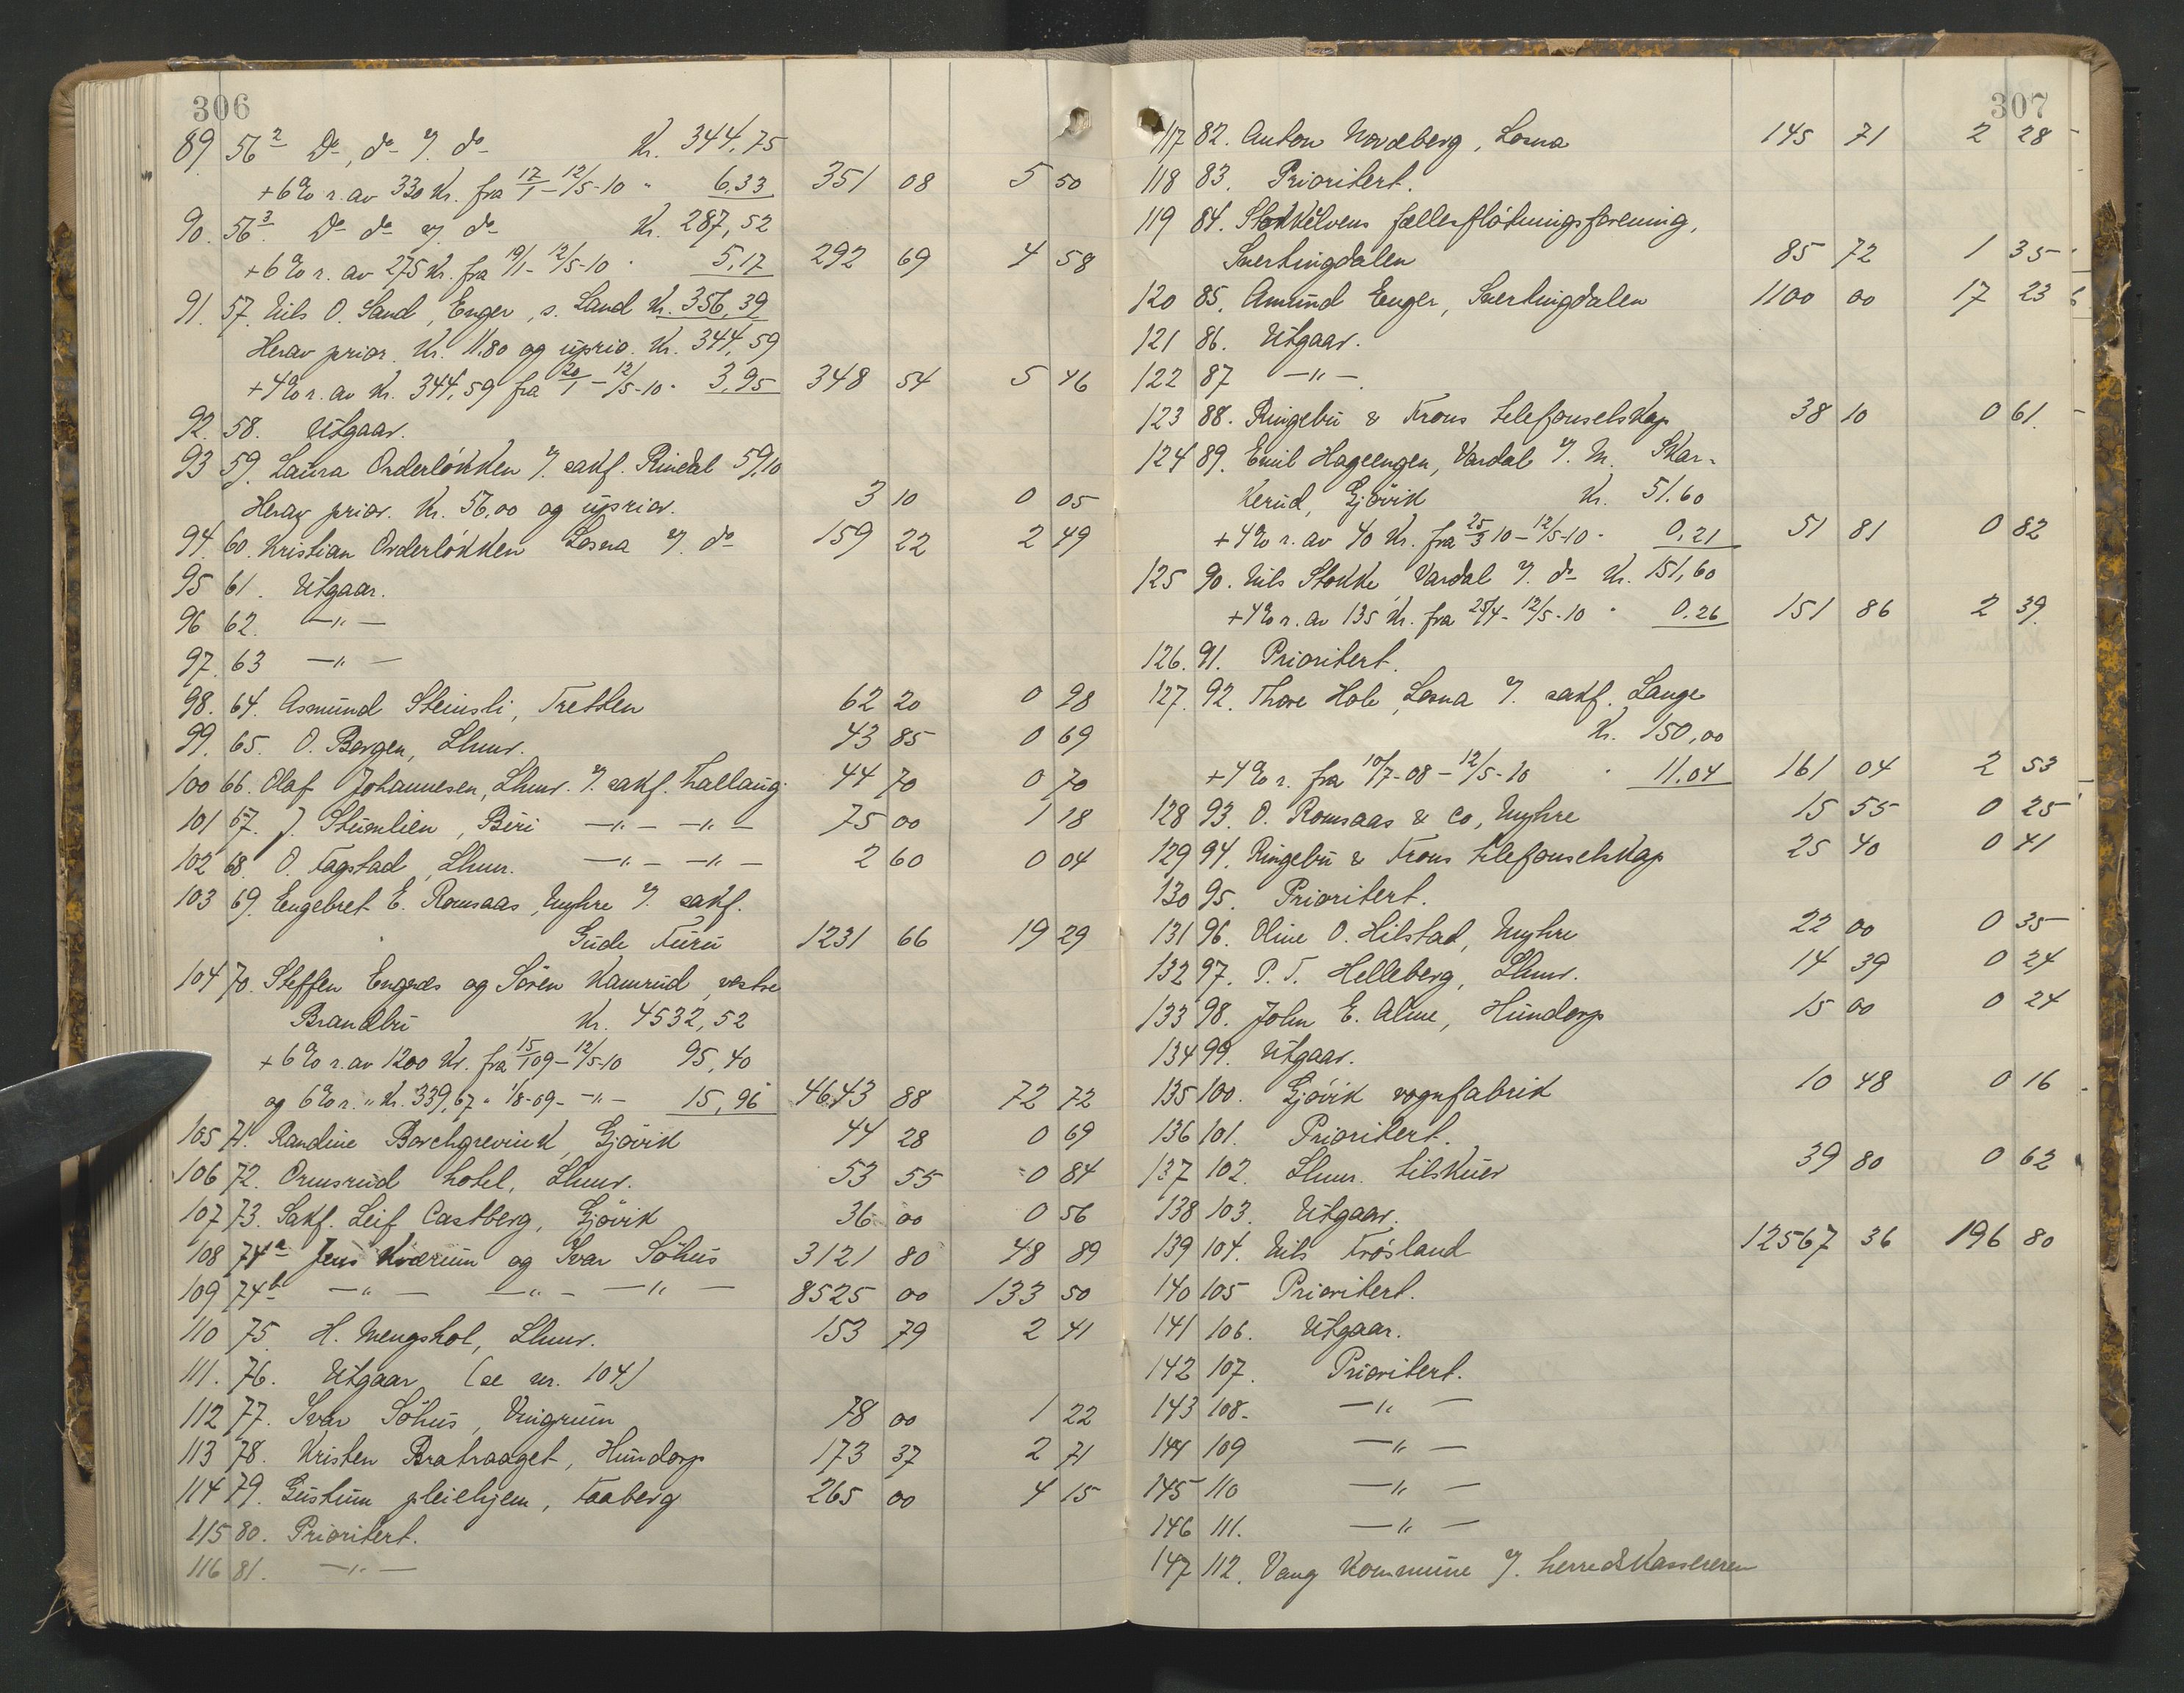 306
89 56² Do, do v. do Kr. 344,75
+6% r. av 330 Kr. fra 17/1–12/5-10 " 6,33 351 08 5 50
90. 56³. Do do v. do Kr. 287,52
+6% r. av 275 Kr. fra 19/1–12/5-10 " 5,17 292 69 4 58
91. 57. Nils O. Sand, Enger, s. Land Kr. 356,39
Herav prior. Kr. 11,80 og uprio. Kr. 344,59
+4% r. av Kr. 344,59 fra 20/1–12/5-10 " 3,95 348 54 5 46
92. 58. Utgaar.
93 59. Laura Onderløkken v. sakf. Rindal 59,10
Herav prior. Kr. 56,00 og uprior. 3 10 0 05
94. 60. Kristian Onderløkken Losna v. do 159 22 2 49
95 61. Utgaar.
96 62. —"—
97. 63 —"—
98. 64. Asmund Steinsli, Tretten 62 20 0 98
99. 65. O. Bergen, Lhmr. 43 85 0 69
100 66. Olaf Johannesen, Lhmr. v. sakf. Thallaug. 44 70 0 70
101 67. J. Stumlien, Biri —"— —"— 75 00 1 18
102 68. O. Fagstad, Lhmr. —"— —"— 2 60 0 04
103 69. Engebret E. Romsaas, Myhre v. sakf.
Gude Furu 1231 66 19 29
104 70. Steffen Engnæs og Søren Kamrud, vestre
Brandbu Kr. 4532,52
+6% r. av 1200 Kr. fra 15/1 09–12/5-10 95,40
og 6% r. " Kr. 339,67 " 1/8-09– —"— 15,96 4643 88 72 72
105 71. Randine Borchgrevink, Gjøvik 44 28 0 69
106 72. Ormsrud hotel, Lhmr. 53 55 0 84
107 73. Sakf. Leif Castberg, Gjøvik 36 00 0 56
108 74a Jens Kværum og Ivar Søhus 3121 80 48 89
109 74b —"— —"— —"— 8525 00 133 50
110 75. H. Mengshol, Lhmr. 153 79 2 41
111. 76. Utgaar (se nr. 104)
112 77. Ivar Søhus, Vingrum 78 00 1 22
113 78. Kristen Bratraaget, Hundorp 173 37 2 71
114 79. Gustum pleiehjem, Faaberg 265 00 4 15
115 80. Prioritert.
116 81. —"—
307
117 82. Anton Nordberg, Losna 145 71 2 28
118 83. Prioritert.
119 84. Stokkelvens fællesfløtningsforening,
Snertingdalen 85 72 1 35
120 85. Amund Enger, Snertingdalen 1100 00 17 23
121 86. Utgaar.
122 87 —"—.
123 88. Ringebu & Frons telefonselskap 38 10 0 61.
124 89. Emil Hageengen, Vardal v. M. Skar-
kerud, Gjøvik Kr. 51.60
+4% r. av 40 Kr. fra 25/3 10–12/5-10 " 0,21 51 81 0 82
125 90. Nils Stokke Vardal v. do Kr. 151,60
+4% r. av 135 Kr. fra 25/4–12/5-10 " 0.26 151 86 2 39.
126. 91. Prioritert.
127. 92. Thore Hole, Losna v. sakf. Lange
Kr. 150,00
+4% r. fra 10/7-08–12/5-10 " 11.04 161 04 2 53
128 93. O. Romsaas & Co, Myhre 15 55 0 25
129 94. Ringebu & Frons telefonselskap 25 40 0 41
130 95. Prioritert.
131 96. Oline O. Hilstad, Myhre 22 00 0 35
132 97. P. T. Helleberg, Lhmr. 14 39 0 24
133 98. John E. Alme, Hundorp 15 00 0 24
134 99. Utgaar.
135 100. Gjøvik vognfabrik 10 48 0 16
136 101. Prioritert.
137 102. Lhmr. tilskuer 39 80 0 62
138 103. Utgaar.
139 104. Nils Frøsland 12567 36 196 80
140 105 Prioritert.
141 106. Utgaar.
142 107. Prioritert.
143 108. —"—
144 109 —"—
145 110 —"—
146 111. —"—
147 112. Vang Kommune v. herredskassereren